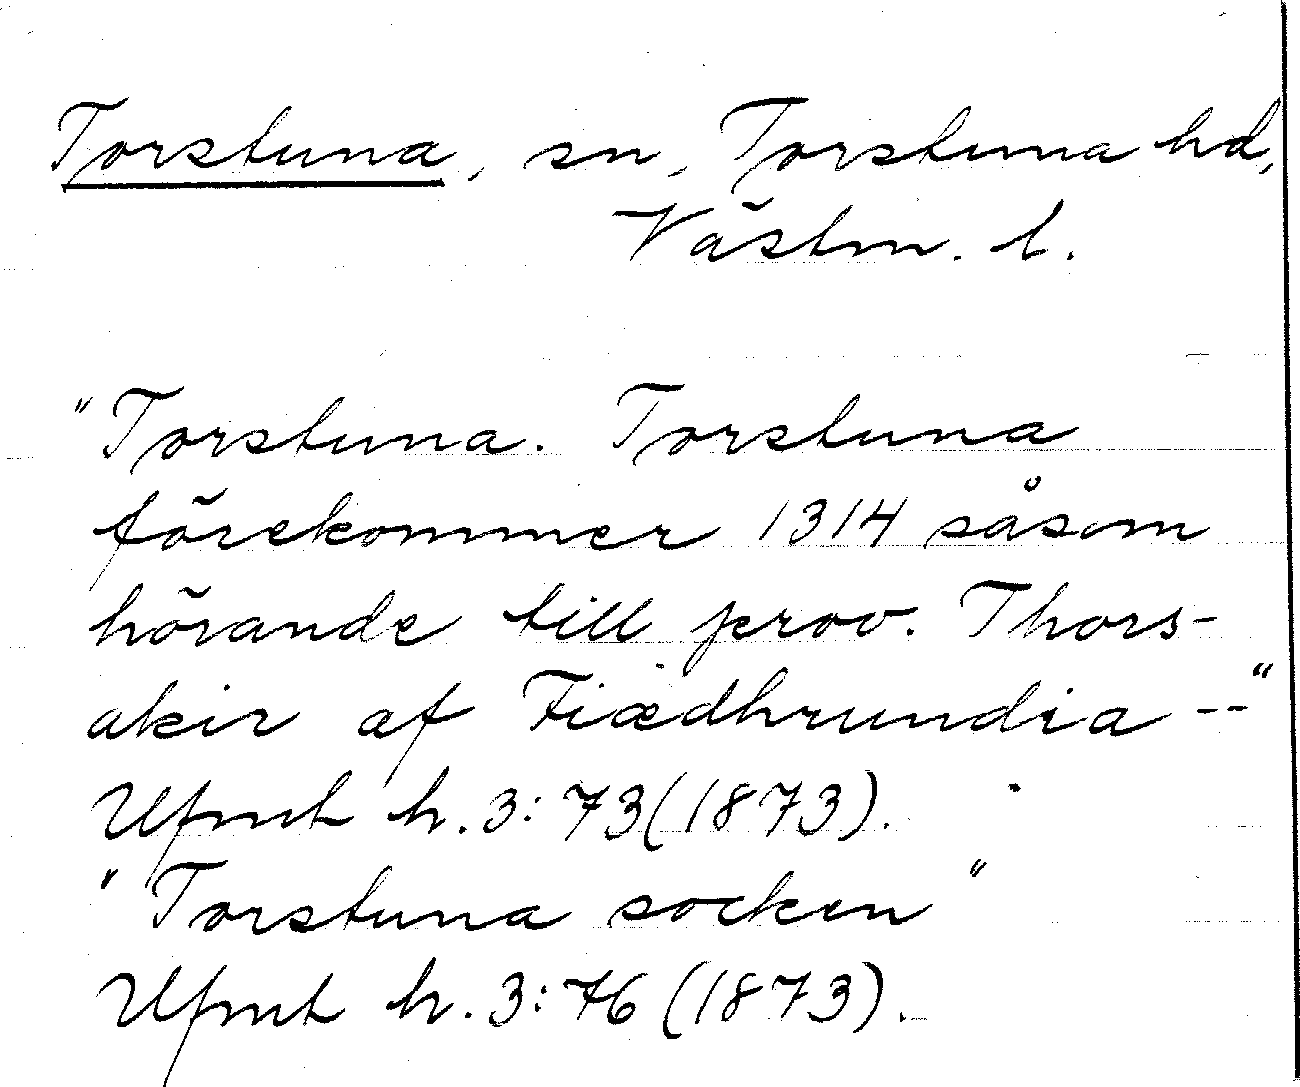 Torstuna, sn, Torstuna hd,
Västm. l.
"Torstuna. Torstuna
förekommer 1314 såsom
hörande till prov. Thors-
akir af Fiædhrundia --"
Ufmt h. 3:73 (1873).
"Torstuna socken"
Ufmt h. 3:76 (1873).